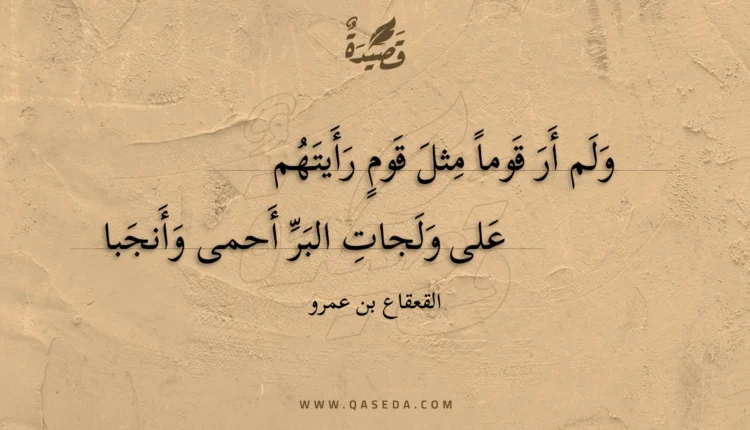 قَصِيدَةٌ
وَلَم أَرَ قَوماً مِثلَ قَومٍ رَأَيتَهُم
عَلى وَلَجاتِ البَرِّ أَحمى وَأَنجَبا
القعقاع بن عمرو
WWW.QASEDA.COM